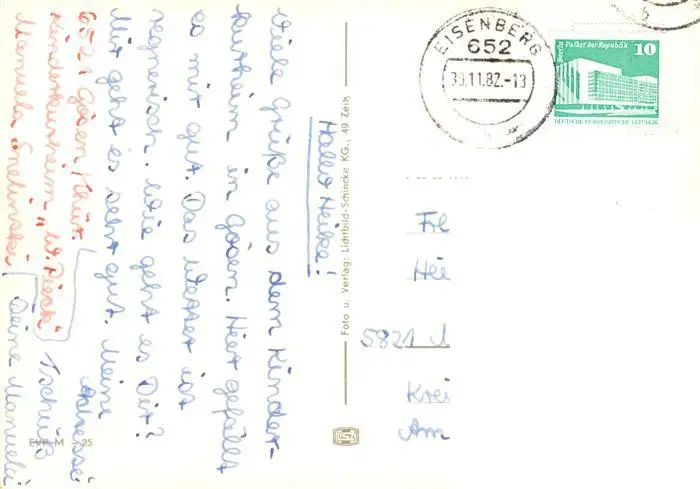 Hallo Heike!
Viele Grüße aus dem Kinder-
kurheim in Gösen. Hier gefällt
es mir gut. Das Wetter ist
regnerisch. Wie geht es Dir?
Mir geht es sehr gut. Meine
Adresse:
6521 Gösen
Kinderkurheim „W. Pieck"
Manuela
Tschüß
Deine Manuela
EISENBERG
652
30.11.82.-13
b
Berlin Palast der Republik 10
DEUTSCHE DEMOKRATISCHE REPUBLIK
Foto u. Verlag: Lichtbild-Schincke KG., 49 Zeitz
Hei
5821
Krei
Am
EVP M -,25